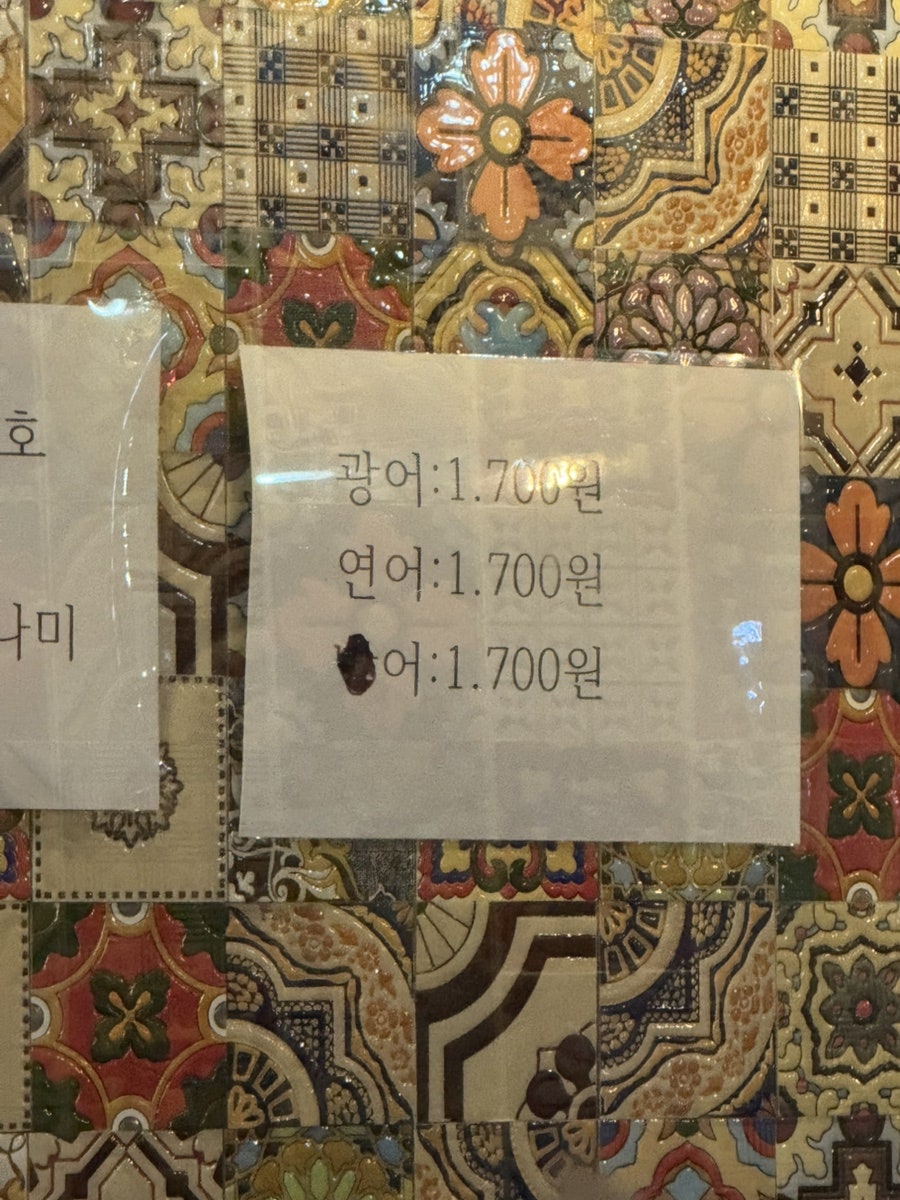 호
나미
광어:1.700원
연어:1.700원
어:1.700원